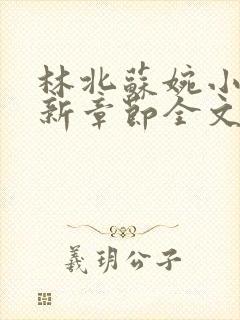 林北蘇婉小
新章節全文
羲玥公子